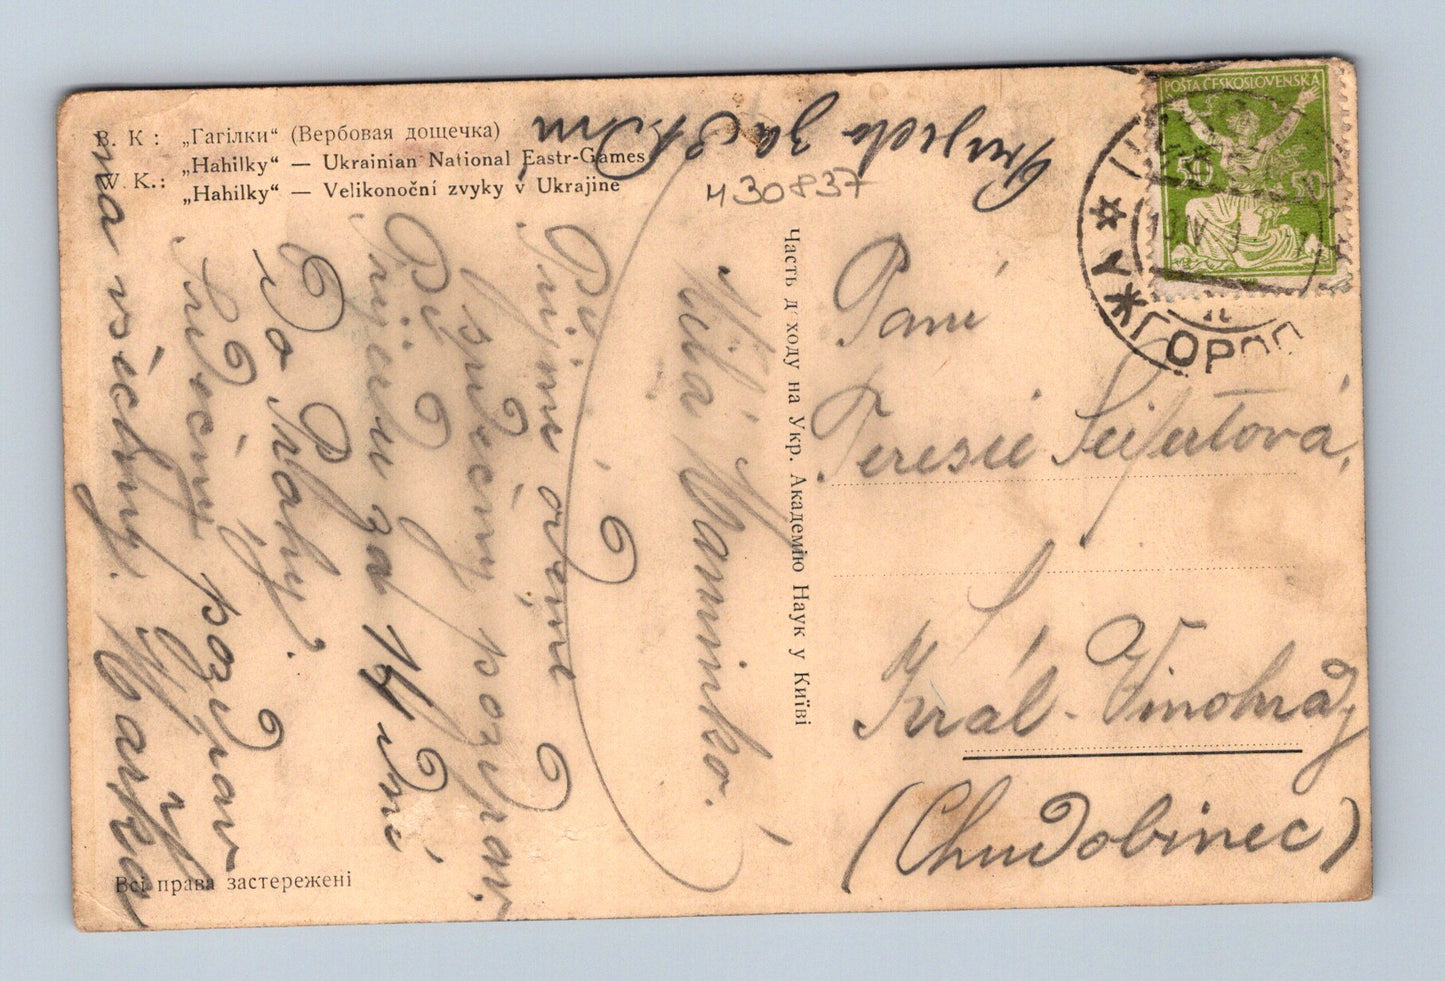 В. К: „Гагілки“ (Вербовая дощечка)
„Hahilky“ — Ukrainian National Eastr-Games
W. K.: „Hahilky“ — Velikonoční zvyky v Ukrajine
430837
POŠTA ČESKOSLOVENSKÁ
50 50
Часть д ходу на Укр. Академію Наук у Київі
Paní
Teresie Seifertová,
Král. Vinohrady
(Chudobinec)
Milá Maminko.
srdečný pozdrav,
přijedu za 14 dní
do Prahy.
Srdečný pozdrav
na všechny. Mařka
Přijedu za
Всі права застережені